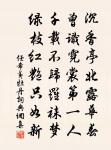 沉香亭北露華春
曾識霓裳第一人
千載不歸羅襪夢
綠枝紅艷只如新
任希夷牡丹詩與調羹